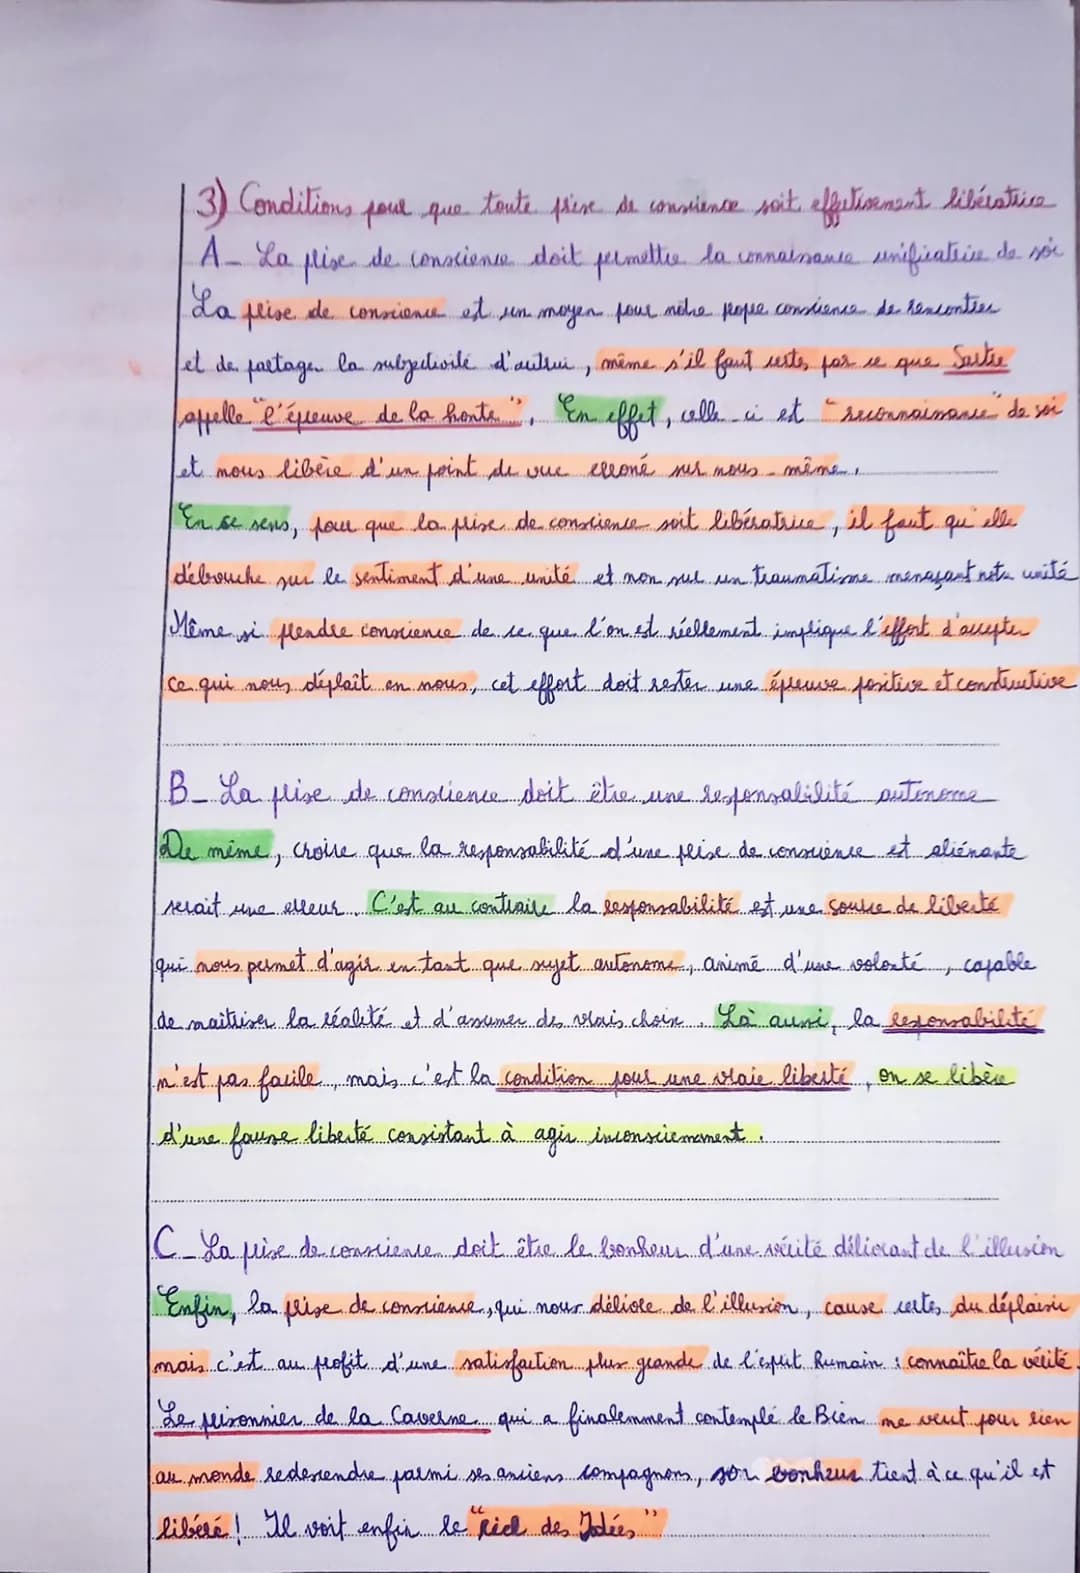 3) Conditions pour que toute prise de conscience soit effectivement libératrice
A_ La prise de conscience doit permettre la connaissance unificatrice de soi
La prise de conscience est un moyen pour notre propre conscience de rencontrer
et de partager la subjectivité d'autrui, même s'il faut certes, par ce que Sartre
appelle "l'épreuve de la honte". En effet, celle-ci est "reconnaissance" de soi
et nous libère d'un point de vue erroné sur nous-même.
En ce sens, pour que la prise de conscience soit libératrice, il faut qu'elle
débouche sur le sentiment d'une unité et non sur un traumatisme menaçant notre unité
Même si prendre conscience de ce que l'on est réellement implique l'effort d'accepter
ce qui nous déplaît en nous, cet effort doit rester une épreuve positive et constructive
B_ La prise de conscience doit être une responsabilité autonome
De même, croire que la responsabilité d'une prise de conscience est aliénante
serait une erreur. C'est au contraire la responsabilité est une source de liberté
qui nous permet d'agir en tant que sujet autonome, animé d'une volonté, capable
de maîtriser la réalité et d'assumer des vrais choix. Là aussi, la responsabilité
n'est pas facile, mais c'est la condition pour une vraie liberté, on se libère
d'une fausse liberté consistant à agir inconsciemment.
C_ La prise de conscience doit être le bonheur d'une vérité délivrant de l'illusion
Enfin, la prise de conscience, qui nous délivre de l'illusion, cause certes du déplaisir
mais c'est au profit d'une satisfaction plus grande de l'esprit humain : connaître la vérité.
Le prisonnier de la Caverne qui a finalemment contemplé le Bien ne veut pour rien
au monde redescendre parmi ses anciens compagnons, son bonheur tient à ce qu'il est
libéré! Il voit enfin le "ciel des Idées"